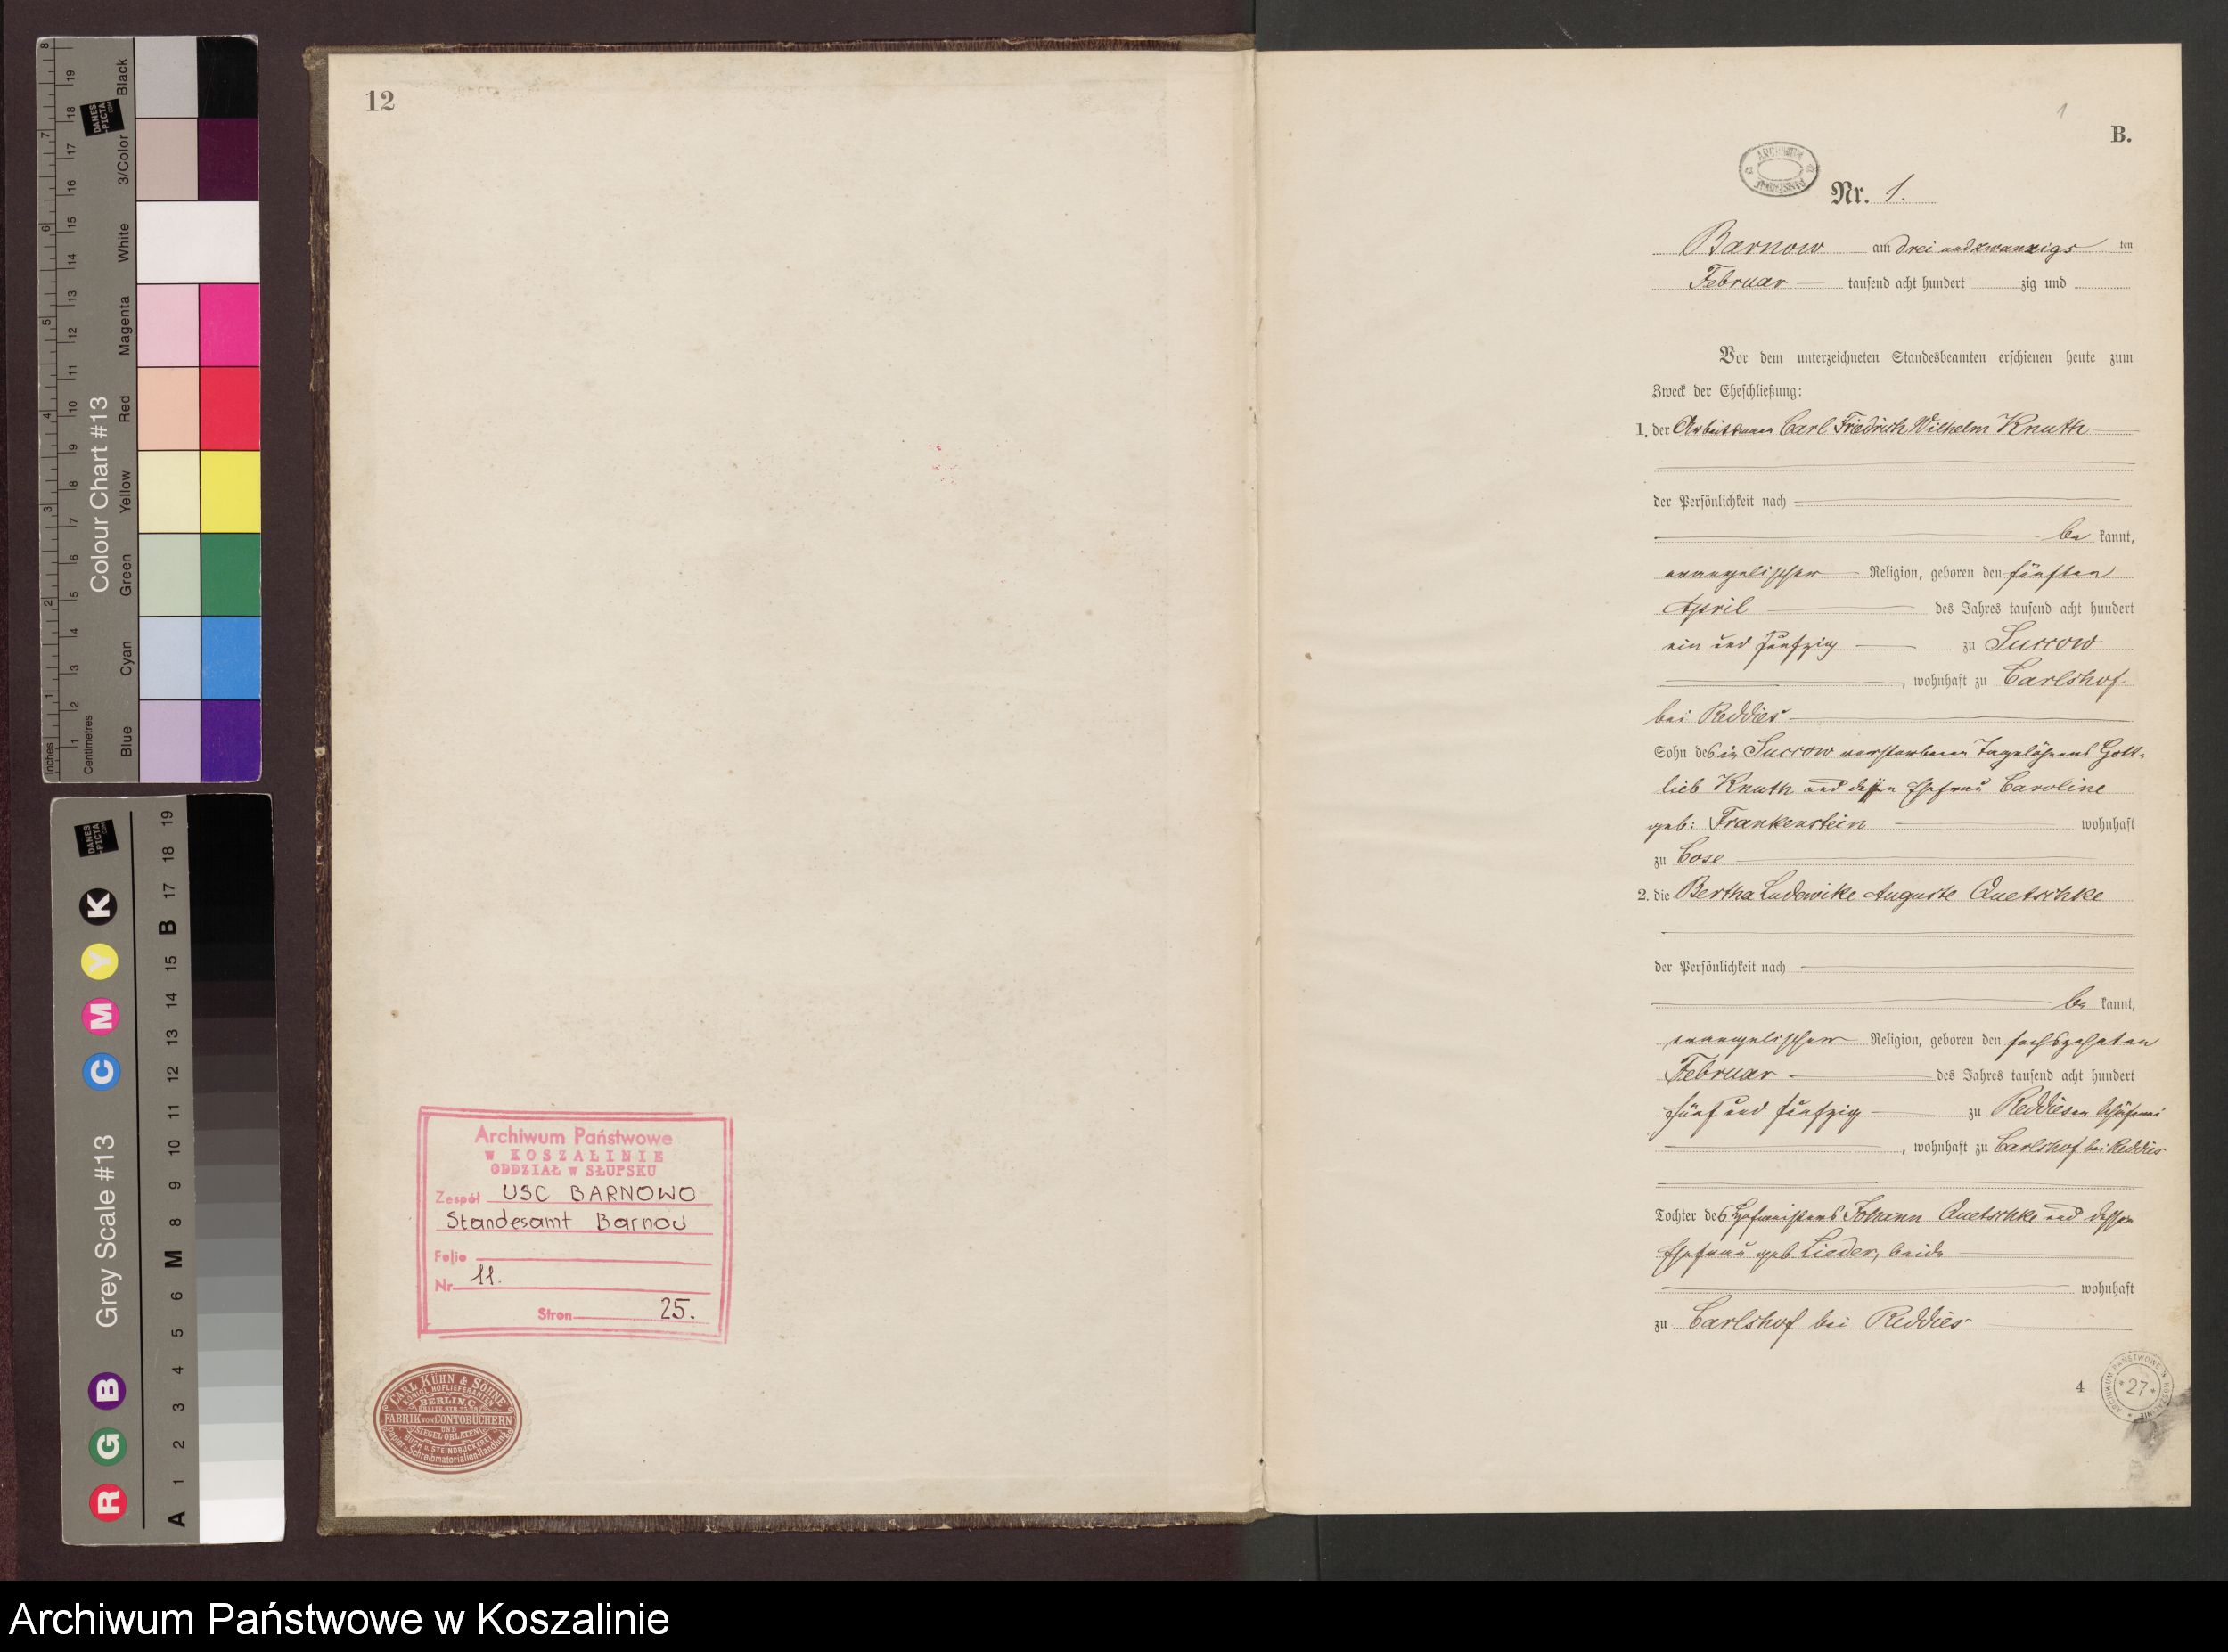 12
Archiwum Państwowe
W KOSZALINIE
ODDZIAŁ W SŁUPSKU
Zespół USC BARNOWO
Standesamt Barnow
Folio
Nr 11.
Stron 25.
CARL KÜHN & SÖHNE
KÖNIGL. HOFLIEFERANTEN
BERLIN C.
FABRIK VON CONTOBÜCHERN
UND
SIEGEL-OBLATEN
BUCH u. STEINDRUCKEREI
Papier- Schreibmaterialien-Handlung
1
B.
ARCHIWUM PAŃSTWOWE
Nr. 1.
Barnow am drei und zwanzigs ten
Februar tausend acht hundert zig und
Vor dem unterzeichneten Standesbeamten erschienen heute zum
Zweck der Eheschließung:
1. der Arbeitsmann Carl Friedrich Wilhelm Knuth
der Persönlichkeit nach
be kannt,
evangelischer Religion, geboren den fünften
April des Jahres tausend acht hundert
ein und fünfzig zu Suckow
, wohnhaft zu Carlshof
bei Reddies
Sohn des in Suckow verstorbenen Tagelöhners Gott-
lieb Knuth und dessen Ehefrau Caroline
geb: Frankenstein wohnhaft
zu Cose
2. die Bertha Ludewike Auguste Quetschke
der Persönlichkeit nach
be kannt,
evangelischer Religion, geboren den sechszehnten
Februar des Jahres tausend acht hundert
fünf und fünfzig zu Reddiesen Schäferei
, wohnhaft zu Carlshof bei Reddies
Tochter des Hofmeisters Johann Quetschke und dessen
Ehefrau geb. Lieder, beide
wohnhaft
zu Carlshof bei Reddies
4
ARCHIWUM PAŃSTWOWE W KOSZALINIE
* 27 *
Inches
Centimetres
Colour Chart #13
Blue
Cyan
Green
Yellow
Red
Magenta
White
3/Color
Black
DANES
-PICTA
.COM
Grey Scale #13
R G B C M Y K
A 1 2 3 4 5 6 M 8 9 10 11 12 13 14 15 B 17 18 19
Archiwum Państwowe w Koszalinie